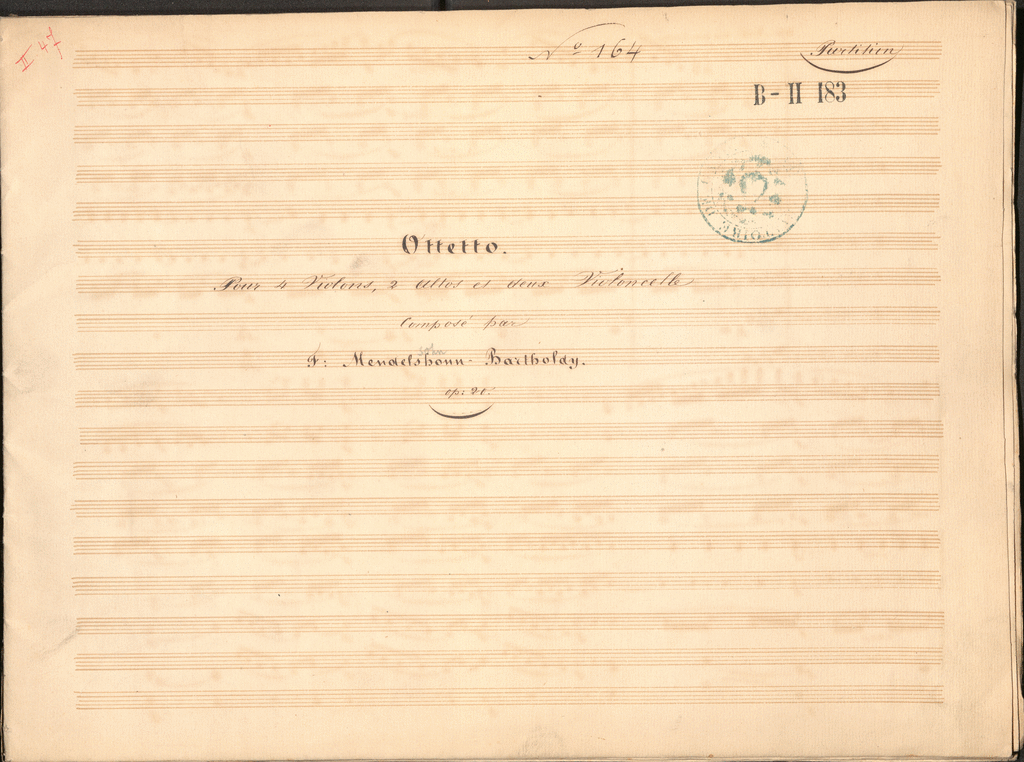 II 47
Nº 164
Partition
B - II 183
Ottetto.
Pour 4 Violons, 2 Altos et deux Violoncelle
Composé par
sohn
F: Mendelshonn-Bartholdy.
op: 20.